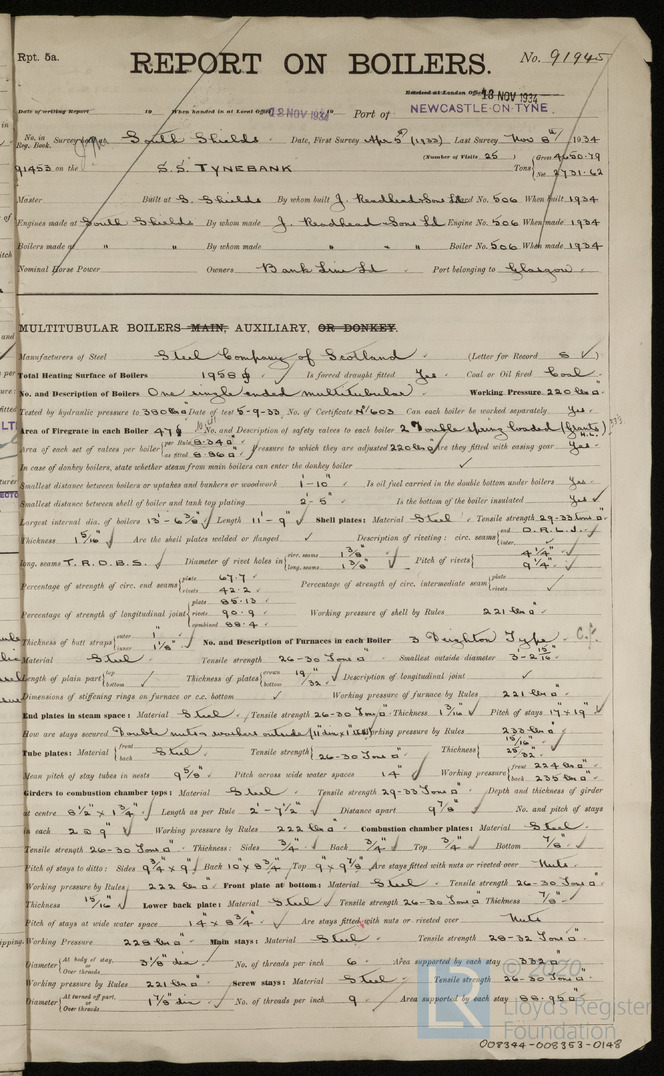 Rpt. 5a.
REPORT ON BOILERS.
No. 91945
Received at London Office 13 NOV 1934
Date of writing Report 19 When handed in at Local Office 12 NOV 1934 19 Port of NEWCASTLE-ON-TYNE
No. in Reg. Book. Survey South Shields Date, First Survey Apr 5th (1933) Last Survey Nov 8th 1934
(Number of Visits 25)
91453 on the S.S. TYNEBANK Tons { Gross 4650.79 Net 2731.62
Master Built at S. Shields By whom built J. Readhead & Sons Ltd Yard No. 506 When built 1934
Engines made at South Shields By whom made J. Readhead & Sons Ld Engine No. 506 When made 1934
Boilers made at " " By whom made " " " Boiler No. 506 When made 1934
Nominal Horse Power Owners Bank Line Ld Port belonging to Glasgow
MULTITUBULAR BOILERS MAIN, AUXILIARY, OR DONKEY.
Manufacturers of Steel Steel Company of Scotland (Letter for Record S )
Total Heating Surface of Boilers 1958 Is forced draught fitted Yes Coal or Oil fired Coal
No. and Description of Boilers One single ended multitubular Working Pressure 220 lbs
Tested by hydraulic pressure to 380 lbs Date of test 5-9-33 No. of Certificate No 603 Can each boiler be worked separately Yes
Area of Firegrate in each Boiler 47 No. and Description of safety valves to each boiler 2 Double spring loaded
Area of each set of valves per boiler { per Rule 8.34 as fitted 8.86 Pressure to which they are adjusted 220 lbs Are they fitted with easing gear Yes
In case of donkey boilers, state whether steam from main boilers can enter the donkey boiler
Smallest distance between boilers or uptakes and bunkers or woodwork 1'-10" Is oil fuel carried in the double bottom under boilers Yes
Smallest distance between shell of boiler and tank top plating 2'-5" Is the bottom of the boiler insulated Yes
Largest internal dia. of boilers 13'-6 3/8" Length 11'-9" Shell plates: Material Steel Tensile strength 29-33 tons
Thickness 1 5/16" Are the shell plates welded or flanged Description of riveting: circ. seams { end D.R.L.J. inter.
long. seams T.R.D.B.S. Diameter of rivet holes in { circ. seams 1 3/8" long. seams 1 3/8" Pitch of rivets { 4 1/4" 9 1/4"
Percentage of strength of circ. end seams { plate 67.7 rivets 42.2 Percentage of strength of circ. intermediate seam { plate rivets
Percentage of strength of longitudinal joint { plate 85.13 rivets 90.9 combined 88.4 Working pressure of shell by Rules 221 lbs
Thickness of butt straps { outer 1" inner 1 1/8" No. and Description of Furnaces in each Boiler 3 Deighton Type
Material Steel Tensile strength 26-30 Tons Smallest outside diameter 3-2 15/16"
Length of plain part { top bottom Thickness of plates { crown bottom 19/32" Description of longitudinal joint
Dimensions of stiffening rings on furnace or c.c. bottom Working pressure of furnace by Rules 221 lbs
End plates in steam space: Material Steel Tensile strength 26-30 Tons Thickness 1 3/16" Pitch of stays 17" x 19"
How are stays secured Double nuts & washers outside Working pressure by Rules 233 lbs
Tube plates: Material { front back Steel Tensile strength { 26-30 Tons Thickness { 15/16" 25/32"
Mean pitch of stay tubes in nests 9 5/8" Pitch across wide water spaces 14" Working pressure { front 224 lbs back 235 lbs
Girders to combustion chamber tops: Material Steel Tensile strength 29-33 Tons Depth and thickness of girder
at centre 8 1/2" x 1 3/4" Length as per Rule 2'-7 1/2" Distance apart 9 7/8" No. and pitch of stays
in each 2 @ 9" Working pressure by Rules 222 lbs Combustion chamber plates: Material Steel
Tensile strength 26-30 Tons Thickness: Sides 3/4" Back 3/4" Top 3/4" Bottom 7/8"
Pitch of stays to ditto: Sides 9 3/4" x 9" Back 10" x 8 3/4" Top 9" x 9 7/8" Are stays fitted with nuts or riveted over Nuts
Working pressure by Rules 222 lbs Front plate at bottom: Material Steel Tensile strength 26-30 Tons
Thickness 15/16" Lower back plate: Material Steel Tensile strength 26-30 Tons Thickness 7/8"
Pitch of stays at wide water space 14" x 8 3/4" Are stays fitted with nuts or riveted over Nuts
Working Pressure 228 lbs Main stays: Material Steel Tensile strength 28-32 Tons
Diameter { At body of stay, or Over threads 3 1/8" dia No. of threads per inch 6 Area supported by each stay 332
Working pressure by Rules 221 lbs Screw stays: Material Steel Tensile strength 26-30 Tons
Diameter { At turned off part, or Over threads 1 7/8" dia No. of threads per inch 9 Area supported by each stay 88.95
© 2020
Lloyd's Register
Foundation
008344-008353-0148